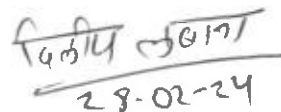 दिलीप लबाना
28-02-24